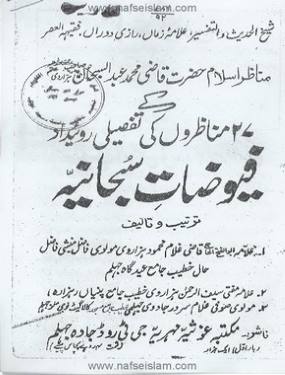 www.nafseislam.com
۹۲
شیخ الحدیث والتفسیر، علامۂ زماں، رازی دوراں، فقیہہ العصر
مناظر اسلام حضرت قاضی محمد عبدالسبحان
کے
۲۷ مناظروں کی تفصیلی رویداد
فیوضات سبحانیہ
ترتیب و تالیف
۱۔ علامہ قاضی غلام محمود ہزاروی مولوی فاضل منشی فاضل
حال خطیب جامع عیدگاہ جہلم
۲۔ علامہ مفتی سیف الرحمٰن ہزاروی خطیب جامع (ہزارہ)
۳۔ مولوی صوفی غلام سرور
ناشر۔ مکتبہ غوثیہ مہریہ جی ٹی روڈ جادہ جہلم
بار اول ایک ہزار
www.nafseislam.com